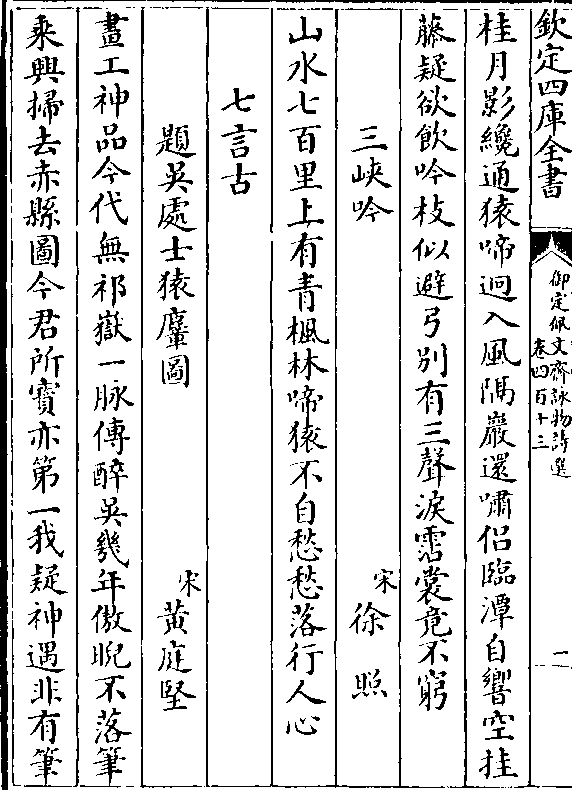 欽定四庫全書
御定佩文齋詠物詩選
卷四百十三
二
桂月影纔通猿啼迥入風隔巖還嘯侶臨潭自響空挂
藤疑欲飲吟枝似避弓別有三聲淚霑裳竟不窮
三峽吟
宋徐照
山水七百里上有青楓林啼猿不自愁愁落行人心
七言古
題吳處士猿麞圖
宋黃庭堅
畫工神品今代無祁嶽一脉傳醉吳幾年傲睨不落筆
乘興掃去赤縣圖今君所寶亦第一我疑神遇非有筆